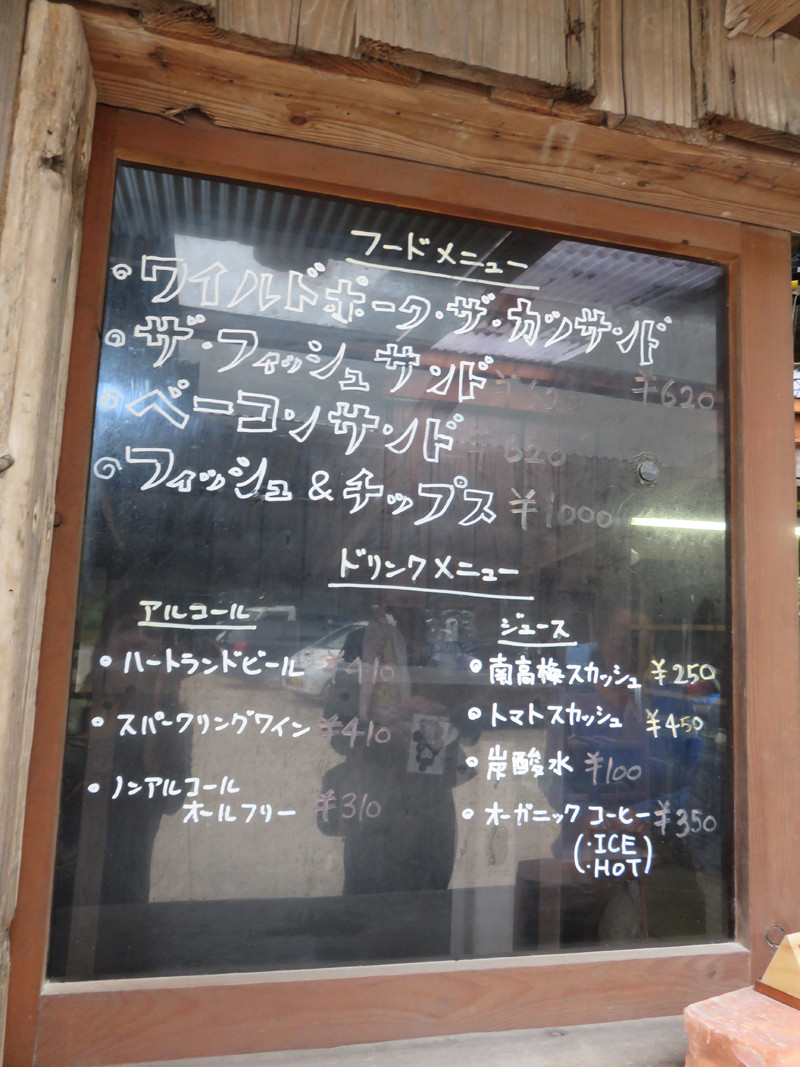 フードメニュー
ワイルドポーク・ザ・カツサンド
¥620
ザ・フィッシュサンド
ベーコンサンド ¥620
フィッシュ&チップス ¥1000
ドリンクメニュー
アルコール
・ハートランドビール ¥410
・スパークリングワイン ¥410
・ノンアルコール
オールフリー ¥310
ジュース
・南高梅スカッシュ ¥250
・トマトスカッシュ ¥450
・炭酸水 ¥100
・オーガニックコーヒー ¥350
(・ICE
・HOT)